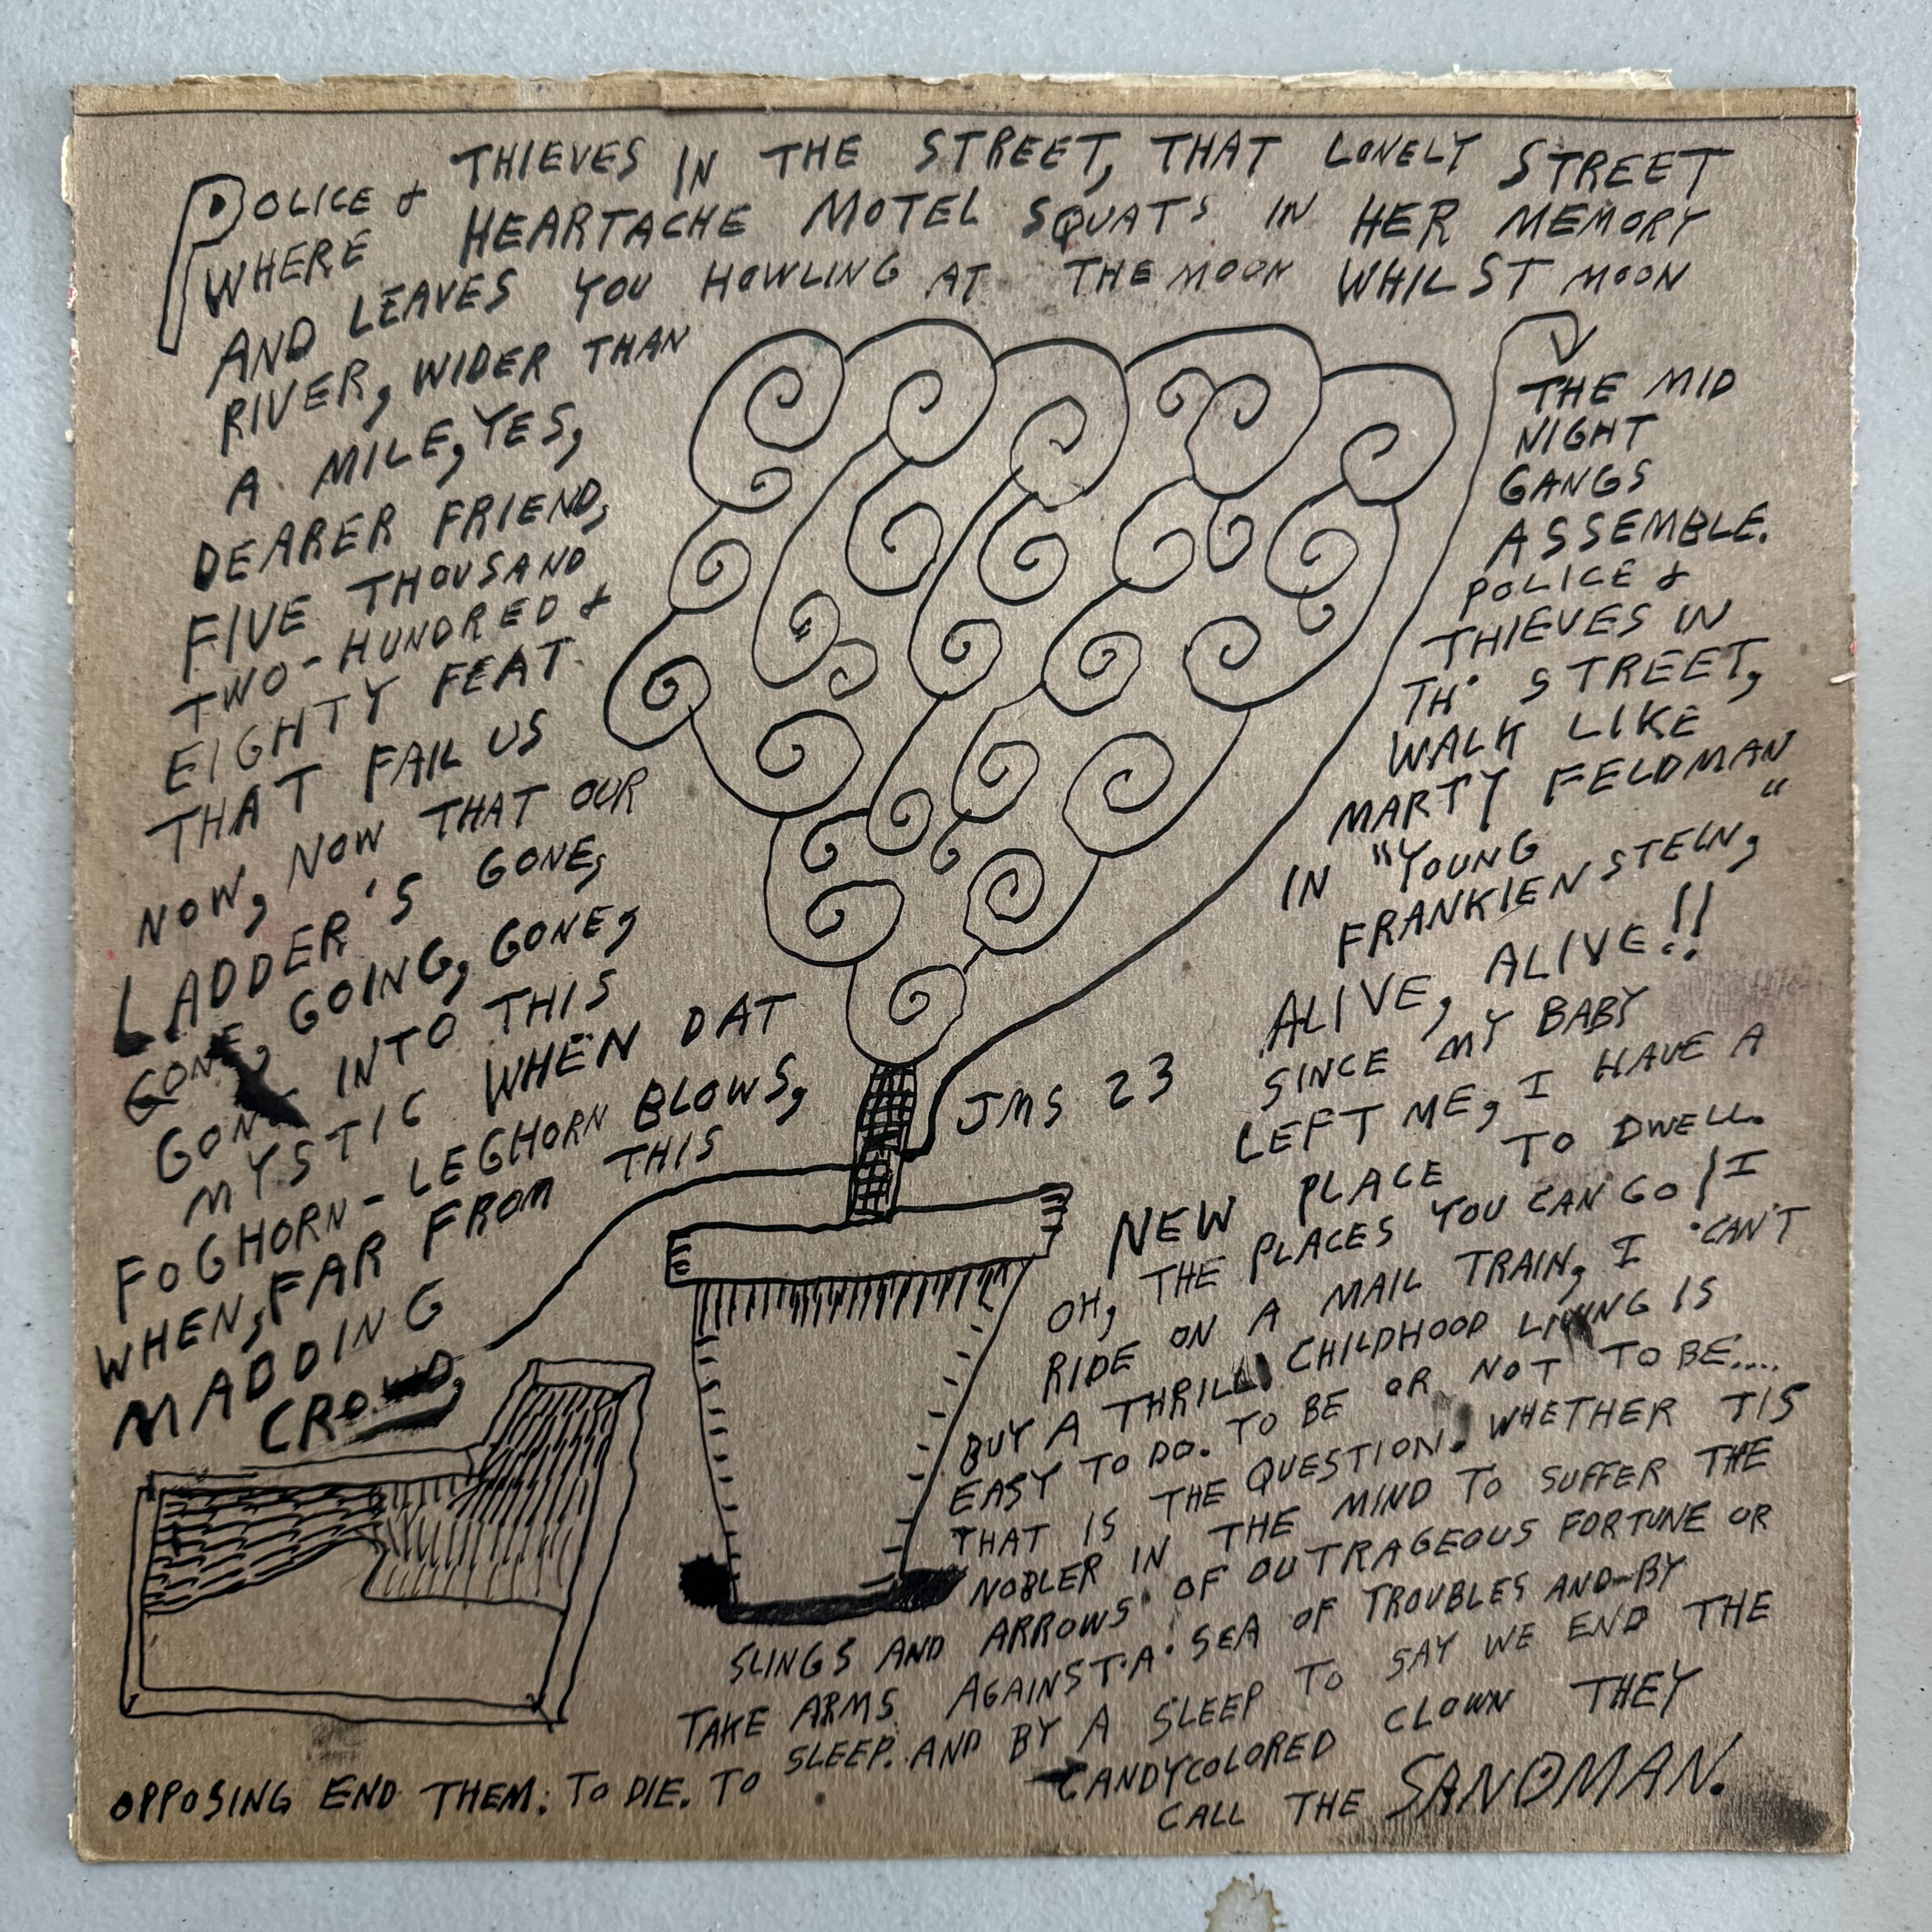 POLICE & THIEVES IN THE STREET, THAT LONELY STREET
WHERE HEARTACHE MOTEL SQUATS IN HER MEMORY
AND LEAVES YOU HOWLING AT THE MOON WHILST MOON
RIVER, WIDER THAN
A MILE, YES,
DEARER FRIEND,
FIVE THOUSAND
TWO-HUNDRED &
EIGHTY FEAT.
THAT FAIL US
NOW, NOW THAT OUR
LADDER'S GONE,
GONE, GOING, GONE,
GONE INTO THIS
MYSTIC WHEN DAT
FOGHORN-LEGHORN BLOWS,
WHEN, FAR FROM THIS
MADDING
CROWD,
THE MID
NIGHT
GANGS
ASSEMBLE.
POLICE &
THIEVES IN
TH' STREET,
WALK LIKE
MARTY FELDMAN
IN "YOUNG
FRANKIENSTEIN,"
ALIVE, ALIVE!!
SINCE MY BABY
LEFT ME, I HAVE A
NEW PLACE TO DWELL.
OH, THE PLACES YOU CAN GO! I
RIDE ON A MAIL TRAIN, I CAN'T
BUY A THRILL. CHILDHOOD LIVING IS
EASY TO DO. TO BE OR NOT TO BE....
THAT IS THE QUESTION. WHETHER TIS
NOBLER IN THE MIND TO SUFFER THE
SLINGS AND ARROWS OF OUTRAGEOUS FORTUNE OR
TAKE ARMS AGAINST A SEA OF TROUBLES AND-BY
OPPOSING END THEM: TO DIE. TO SLEEP. AND BY A SLEEP TO SAY WE END THE
CANDYCOLORED CLOWN THEY
CALL THE SANDMAN.
JMS 23